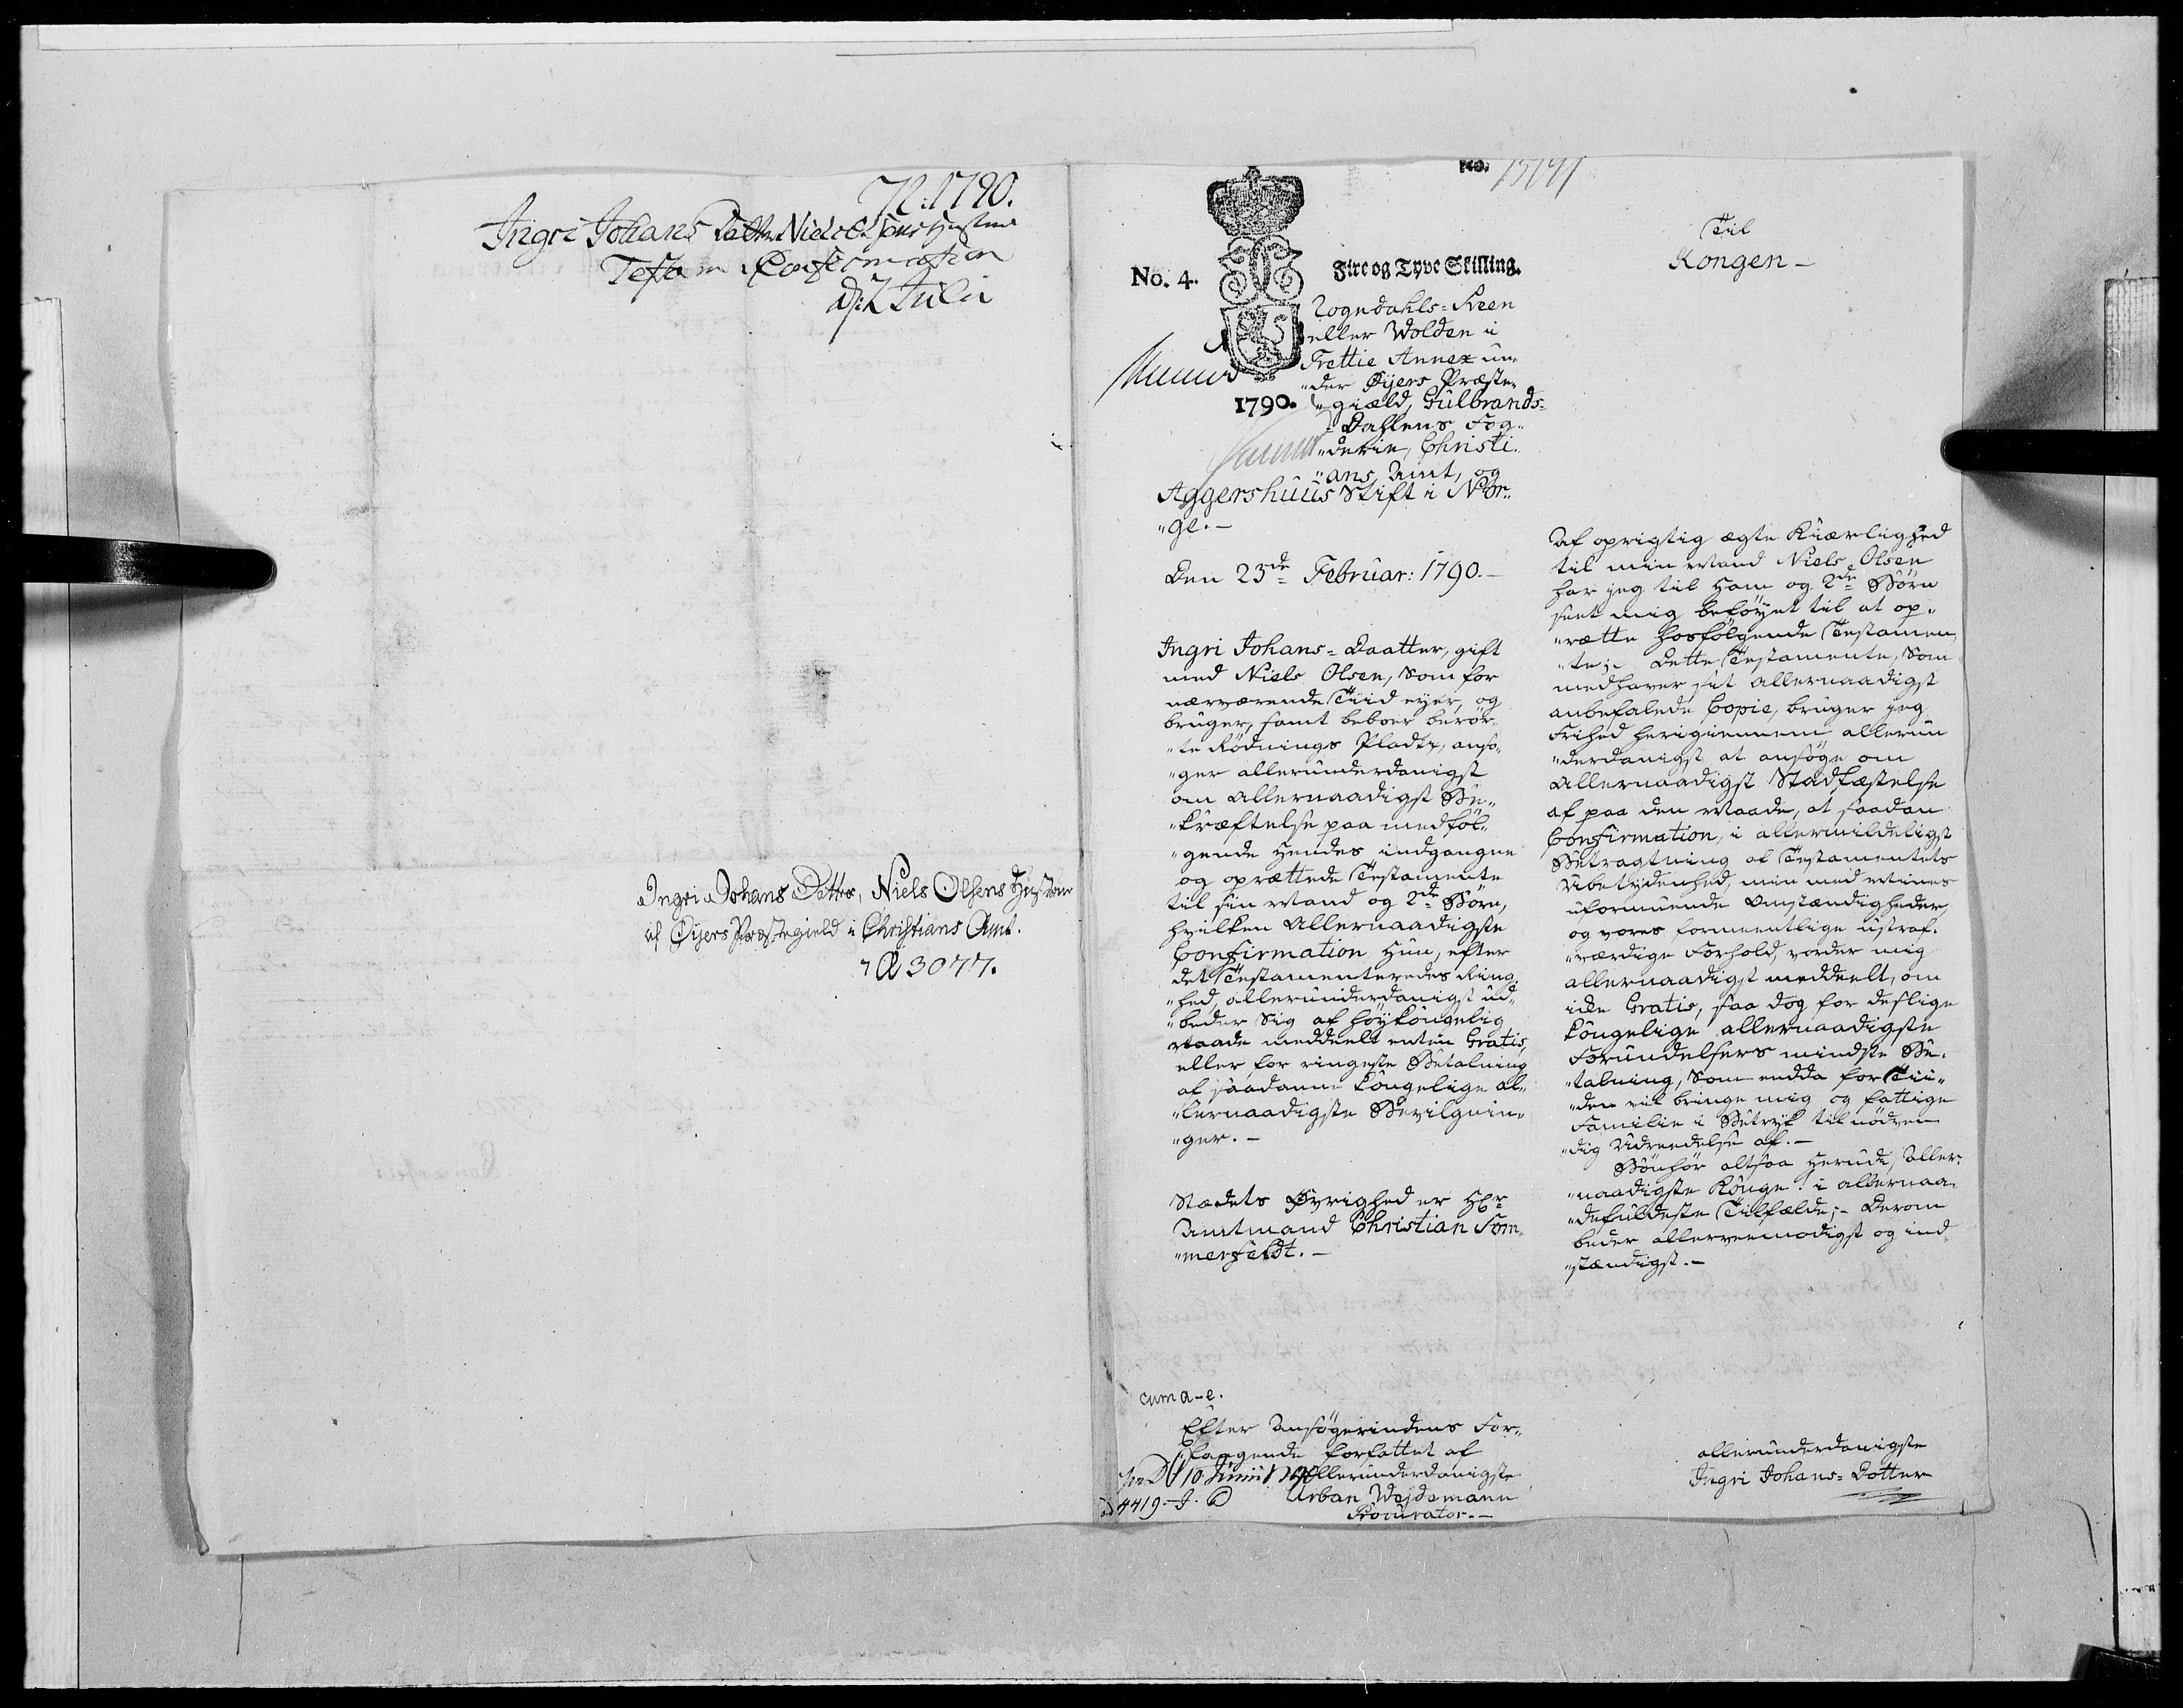 1790.
Ingri Johans Datter Niels Olsens Hustrues
Testam Confirmation
d: 2 Julii
Ingri Johans Datter, Niels Olsens Hustrue
af Øijers Præstegield i Christians Amt.
3077.
No. 15191
No. 4.
Fire og Tyve Skilling.
1790.
Zogndahls-Kreen
eller Wolden i
Frettie Annex un„
„der Øijers Præste„
„giæld, Gülbrands-
-Dahlens Fog„
„derie, Christi„
„ans Amt, og
Aggershüüs Stift i Nor„
„ge.-
Den 23de Februar: 1790.-
Ingri Johans-Daatter, gift
med Niels Olsen, som for
nærværende Tiid eyer, og
bruger, samt beboer berör„
„te Rödnings Pladtz, ansö„
„ger allerunderdanigst
om allernaadigst Be„
„kræftelse paa medföl„
„gende Hendes indgangne
og oprættede Testamente
til sin Mand og 2de Børn,
hvilken Allernaadigste
Confirmation Hun, efter
det Testamenteredes Ring„
„hed, allerunderdanigst ud„
„beder Sig af höykongelig
Naade meddeelt enten Gratis,
eller for ringeste Betalning
af saadanne kongelige al„
„lernaadigste Bevilgnin„
„ger.-
Stædets Øvrighed er Hr
Amtmand Christian Som„
„merfeldt.-
cum a-e.
Efter Ansögerindens For„
„langende forfattet af
allerunderdanigste
Urban Weydemann
Procurator.-
10 Junii 1790
4419-
Til
Kongen-
Af oprigtig ægte Kiærlighed
til min Mand Niels Olsen
har jeg til Ham og 2de Børn
seet mig beföyet til at op„
„rætte hosfölgende Testamen„
„te;- Dette Testamente, som
medhaver sit allernaadigst
anbefalede Copie, bruger jeg
Frihed herigiennem allerun„
„derdanigst at ansöge om
allernaadigst Stadfæstelse
af paa den Maade, at saadan
Confirmation, i allermildeligst
Betragtning af Testamentets
Ubetydenhed, min med Mines
uformuende Omstændigheder,
og vores formeentlige ustraf„
„værdige Forhold, vorder mig
allernaadigst meddeelt, om
ikke Gratis, saa dog for deslige
kongelige allernaadigste
Forundelsers mindste Be„
„talning, som endda for Tii„
„den vil bringe mig og fattige
Familie i Betryk til nödven„
„dig Udreedelse af.-
Bönhör altsaa Herudi, Aller„
„naadigste Konge! i allernaa„
„defuldeste Tilfælde;- Derom
beder allerveemodigst og ind„
„stændigst.-
allerunderdanigste
Ingri Johans-Dotter